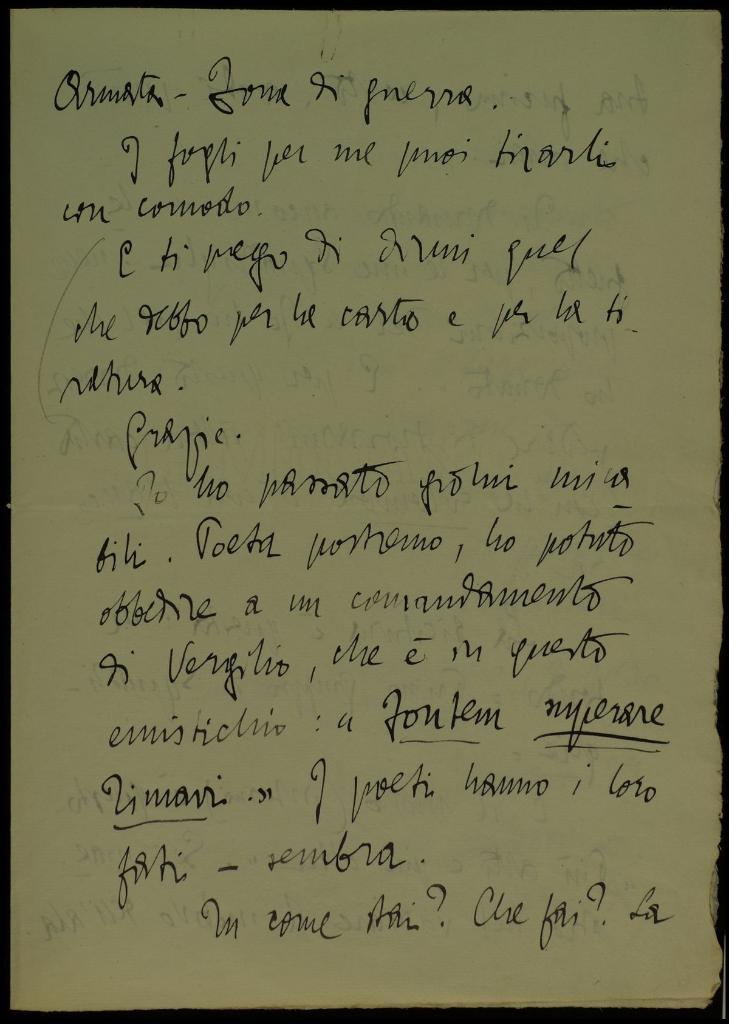 Armata – Zona di guerra.
I fogli per me puoi tirarli
con comodo.
E ti prego di dirmi quel
che debbo per la carta e per la ti-
ratura.
Grazie.
Io ho passato giorni mira
bili. Poeta postremo, ho potuto
obbedire a un comandamento
di Vergilio, che è in questo
emistichio: « Fontem superare
Timavi. » I poeti hanno i loro
fati – sembra.
Tu come stai? Che fai? La